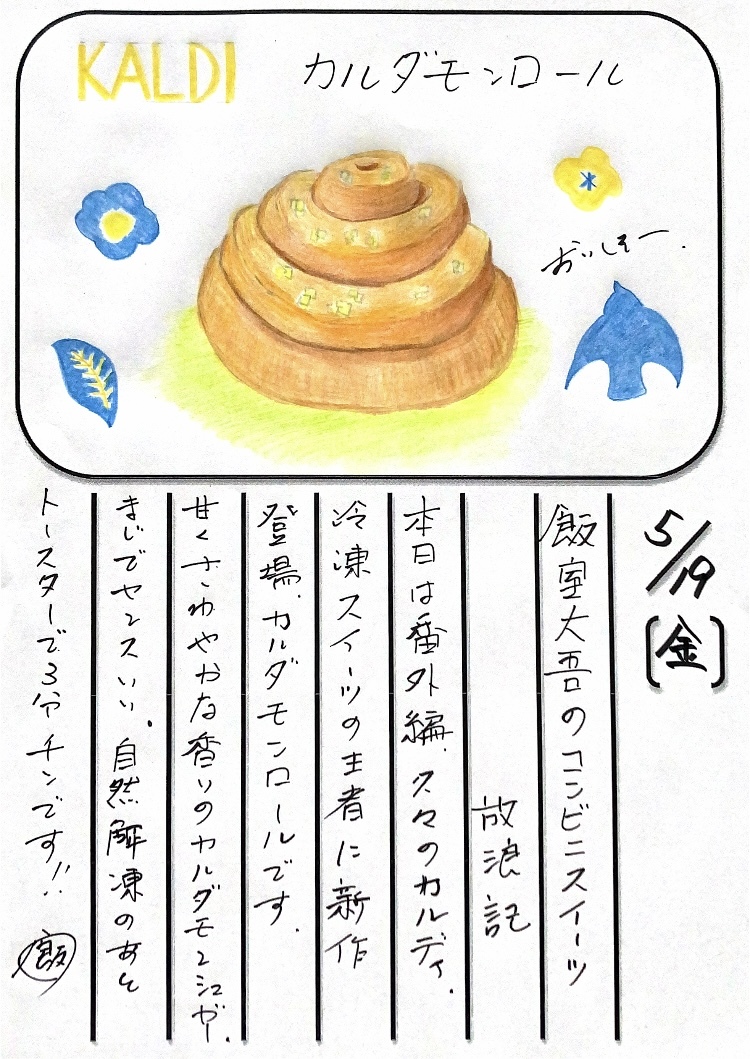 KALDI
カルダモンロール
おいしそー.
5/19
(金)
飯室大吾のコンビニスイーツ
放浪記
本日は番外編. 久々のカルディ.
冷凍スイーツの王者に新作
登場. カルダモンロールです.
甘くさわやかな香りのカルダモンシュガー.
まじでセンスいい. 自然解凍のあと
トースターで3分チンです!!
飯